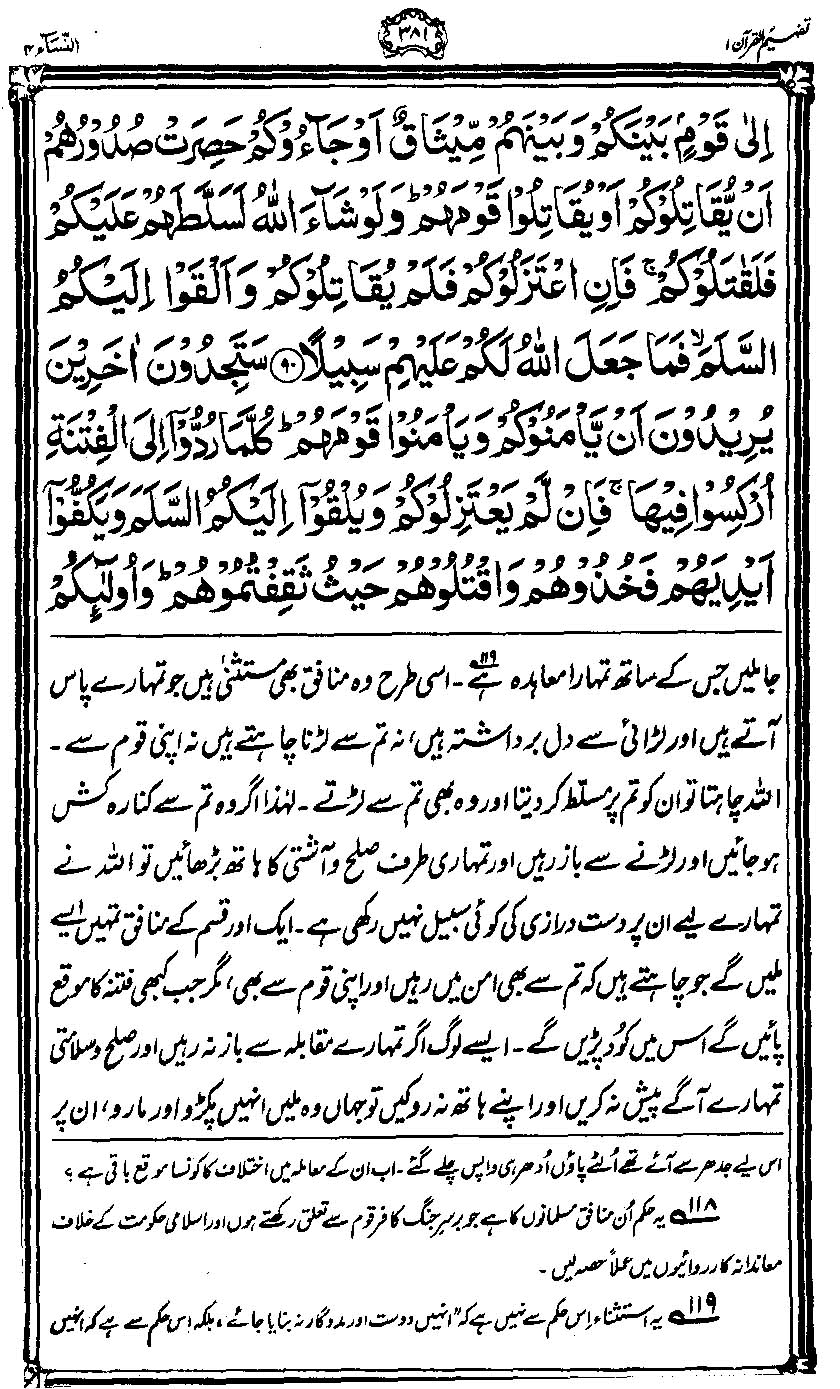 تفہیم القرآن ۱
۳۸۱
النسآء ۴
اِلٰى قَوْمٍۭ بَيْنَكُمْ وَ بَيْنَهُمْ مِّيْثَاقٌ اَوْ جَآءُوْكُمْ حَصِرَتْ صُدُوْرُهُمْ
اَنْ يُّقَاتِلُوْكُمْ اَوْ يُقَاتِلُوْا قَوْمَهُمْ ؕ وَ لَوْ شَآءَ اللّٰهُ لَسَلَّطَهُمْ عَلَيْكُمْ
فَلَقٰتَلُوْكُمْ ۚ فَاِنِ اعْتَزَلُوْكُمْ فَلَمْ يُقَاتِلُوْكُمْ وَ اَلْقَوْا اِلَيْكُمُ
السَّلَمَ ۙ فَمَا جَعَلَ اللّٰهُ لَكُمْ عَلَيْهِمْ سَبِيْلًا ﴿۹۰﴾ سَتَجِدُوْنَ اٰخَرِيْنَ
يُرِيْدُوْنَ اَنْ يَّاْمَنُوْكُمْ وَ يَاْمَنُوْا قَوْمَهُمْ ؕ كُلَّمَا رُدُّوْۤا اِلَى الْفِتْنَةِ
اُرْكِسُوْا فِيْهَا ۚ فَاِنْ لَّمْ يَعْتَزِلُوْكُمْ وَ يُلْقُوْۤا اِلَيْكُمُ السَّلَمَ وَ يَكُفُّوْۤا
اَيْدِيَهُمْ فَخُذُوْهُمْ وَ اقْتُلُوْهُمْ حَيْثُ ثَقِفْتُمُوْهُمْ ؕ وَ اُولٰٓئِكُمْ
جاملیں جس کے ساتھ تمہارا معاہدہ ہے ۱۱۹۔ اسی طرح وہ منافق بھی مستثنٰی ہیں جو تمہارے پاس
آتے ہیں اور لڑائی سے دل برداشتہ ہیں، نہ تم سے لڑنا چاہتے ہیں نہ اپنی قوم سے۔
اللہ چاہتا تو ان کو تم پر مسلط کر دیتا اور وہ بھی تم سے لڑتے۔ لہٰذا اگر وہ تم سے کنارہ کش
ہو جائیں اور لڑنے سے باز رہیں اور تمہاری طرف صلح و آشتی کا ہاتھ بڑھائیں تو اللہ نے
تمہارے لیے ان پر دست درازی کی کوئی سبیل نہیں رکھی ہے۔ ایک اور قسم کے منافق تمہیں ایسے
ملیں گے جو چاہتے ہیں کہ تم سے بھی امن میں رہیں اور اپنی قوم سے بھی، مگر جب کبھی فتنہ کا موقع
پائیں گے اس میں کُود پڑیں گے۔ ایسے لوگ اگر تمہارے مقابلہ سے باز نہ رہیں اور صلح و سلامتی
تمہارے آگے پیش نہ کریں اور اپنے ہاتھ نہ روکیں تو جہاں وہ ملیں انہیں پکڑو اور مارو، ان پر
اس لیے جدھر سے آئے تھے اُلٹے پاؤں اُدھر ہی واپس چلے گئے۔ اب ان کے معاملہ میں اختلاف کا کونسا موقع باقی ہے؟
۱۱۸ یہ حکم اُن منافق مسلمانوں کا ہے جو برسرِ جنگ کافر قوم سے تعلق رکھتے ہوں اور اسلامی حکومت کے خلاف
معاندانہ کارروائیوں میں عملاً حصہ لیں۔
۱۱۹ یہ استثناء اِس حکم سے نہیں ہے کہ ”انہیں دوست اور مددگار نہ بنایا جائے، بلکہ اِس حکم سے ہے کہ انہیں